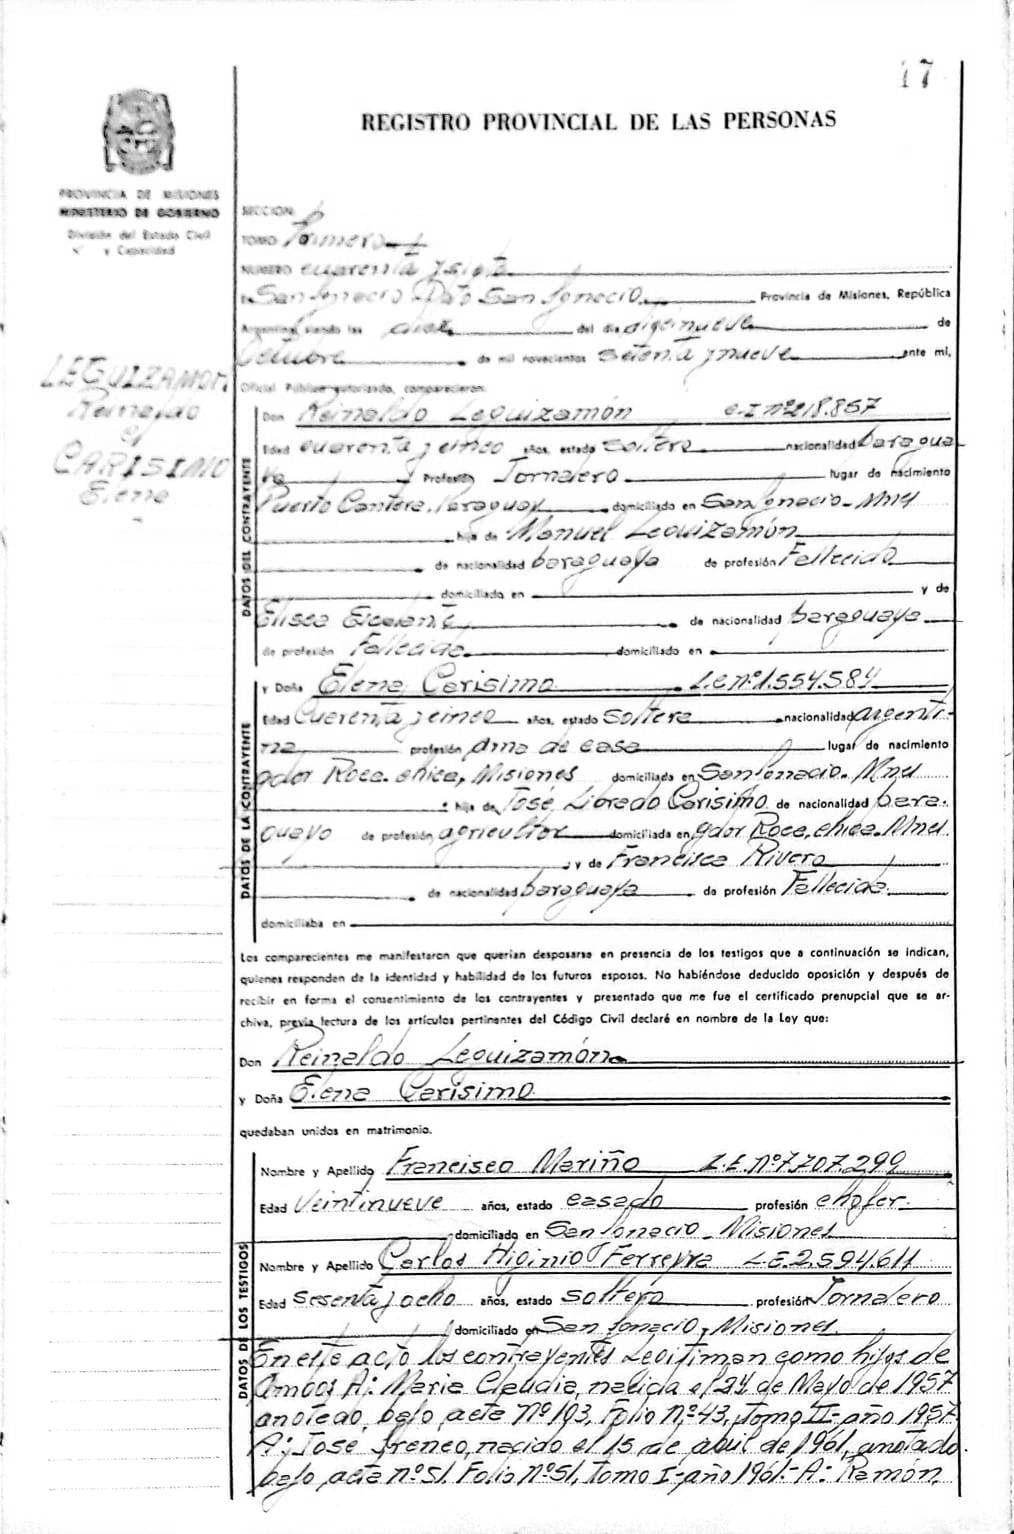 17
REGISTRO PROVINCIAL DE LAS PERSONAS
PROVINCIA DE MISIONES
MINISTERIO DE GOBIERNO
División del Estado Civil
y Capacidad
SECCION
TOMO Primero
NUMERO cuarenta y siete
En San Ignacio Dpto San Ignacio Provincia de Misiones, República
Argentina, siendo las diez del día diecinueve de
Octubre de mil novecientos setenta y nueve ante mí,
Oficial Público autorizado, comparecieron:
LEGUIZAMON
Reinaldo
y
CARISIMO
Elena
DATOS DEL CONTRAYENTE
Don Reinaldo Leguizamón C.I nº218.857
Edad cuarenta y cinco años, estado soltero nacionalidad paragua
ya Profesión Jornalero lugar de nacimiento
Puerto Cantera, Paraguay domiciliado en San Ignacio - Mnes
hijo de Manuel Leguizamón
de nacionalidad paraguaya de profesión Fallecido
domiciliado en y de
Elisea Escalante de nacionalidad paraguaya
de profesión Fallecida domiciliado en
DATOS DE LA CONTRAYENTE
y Doña Elena Carisimo L.C nº1.554.584
Edad Cuarenta y cinco años, estado soltera nacionalidad argenti-
na profesión ama de casa lugar de nacimiento
gdor Roca. chica, Misiones domiciliada en San Ignacio. Mnes
hija de José Librado Carisimo de nacionalidad para-
guayo de profesión agricultor domiciliada en gdor Roca, chica. Mnes.
y de Francisca Rivero
de nacionalidad paraguaya de profesión Fallecida.
domiciliaba en
Los comparecientes me manifestaron que querían desposarse en presencia de los testigos que a continuación se indican,
quienes responden de la identidad y habilidad de los futuros esposos. No habiéndose deducido oposición y después de
recibir en forma el consentimiento de los contrayentes y presentado que me fue el certificado prenupcial que se ar-
chiva, previa lectura de los artículos pertinentes del Código Civil declaré en nombre de la Ley que:
Don Reinaldo Leguizamón
y Doña Elena Carisimo
quedaban unidos en matrimonio.
DATOS DE LOS TESTIGOS
Nombre y Apellido Francisco Mariño L.E.nº7.707.299
Edad Veintinueve años, estado casado profesión chofer.
domiciliado en San Ignacio - Misiones
Nombre y Apellido Carlos Higinio Ferreyra L.E.2.594.611
Edad Sesenta y ocho años, estado soltero profesión Jornalero
domiciliado en San Ignacio, Misiones.
En este acto los contrayentes Legitiman como hijos de
ambos A: Maria Claudia, nacida el 24 de Mayo de 1957
anotado bajo acta Nº 193, Folio Nº 43, Tomo II-año 1957.
A: José Ireneo, nacido el 15 de abril de 1961, anotado
bajo acta nº51. Folio Nº51, tomo I-año 1961.- A: Ramón,